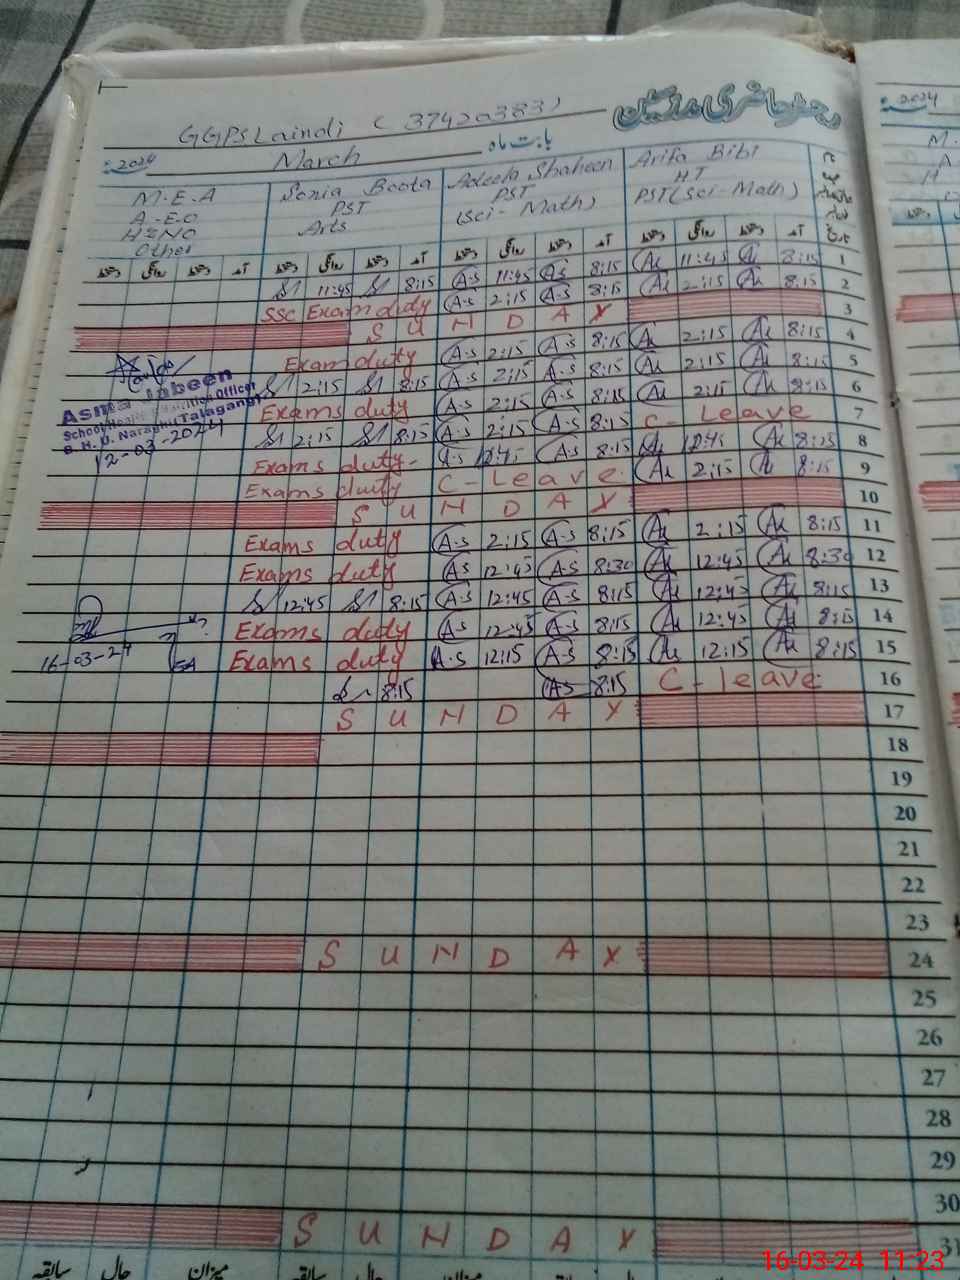 رجسٹر حاضری مدرسین
GGPS Laindi ( 37420383 )
2024 March بابت ماہ
M.E.A Sonia Boota Adeela Shaheen Arifa Bibi
A.E.O PST PST HT
H&NO Arts (Sci-Math) PST (Sci-Math)
Other
دستخط روانگی دستخط آمد دستخط روانگی دستخط آمد دستخط روانگی دستخط آمد دستخط روانگی دستخط آمد
11:45 8:15 A-S 11:45 A-S 8:15 11:45 8:15 1
SSC Exam duty A-S 2:15 A-S 8:15 2:15 8:15 2
S U N D A Y 3
Exam duty A-S 2:15 A-S 8:15 2:15 8:15 4
2:15 8:15 A-S 2:15 A-S 8:15 2:15 8:15 5
Exams duty A-S 2:15 A-S 8:15 2:15 8:15 6
2:15 8:15 A-S 2:15 A-S 8:15 C- Leave 7
Exams duty- A-S 12:45 A-S 8:15 12:45 8:15 8
Exams duty C- Leave 2:15 8:15 9
S U N D A Y 10
Exams duty A-S 2:15 A-S 8:15 2:15 8:15 11
Exams duty A-S 12:45 A-S 8:30 12:45 8:30 12
12:45 8:15 A-S 12:45 A-S 8:15 12:45 8:15 13
Exams duty A-S 12:45 A-S 8:15 12:45 8:15 14
Exams duty A-S 12:15 A-S 8:15 12:15 8:15 15
8:15 A-S 8:15 C- leave 16
S U N D A Y 17
18
19
20
21
22
23
S U N D A Y 24
25
26
27
28
29
30
S U N D A Y 31
Asma Jabeen
School Health & Nutrition Officer
B. H. U. Talagang
12-03-2024
16-03-24
سابقہ حال میزان سابقہ حال میزان سابقہ حال
2024
M.
A
H
16-03-24 11:23